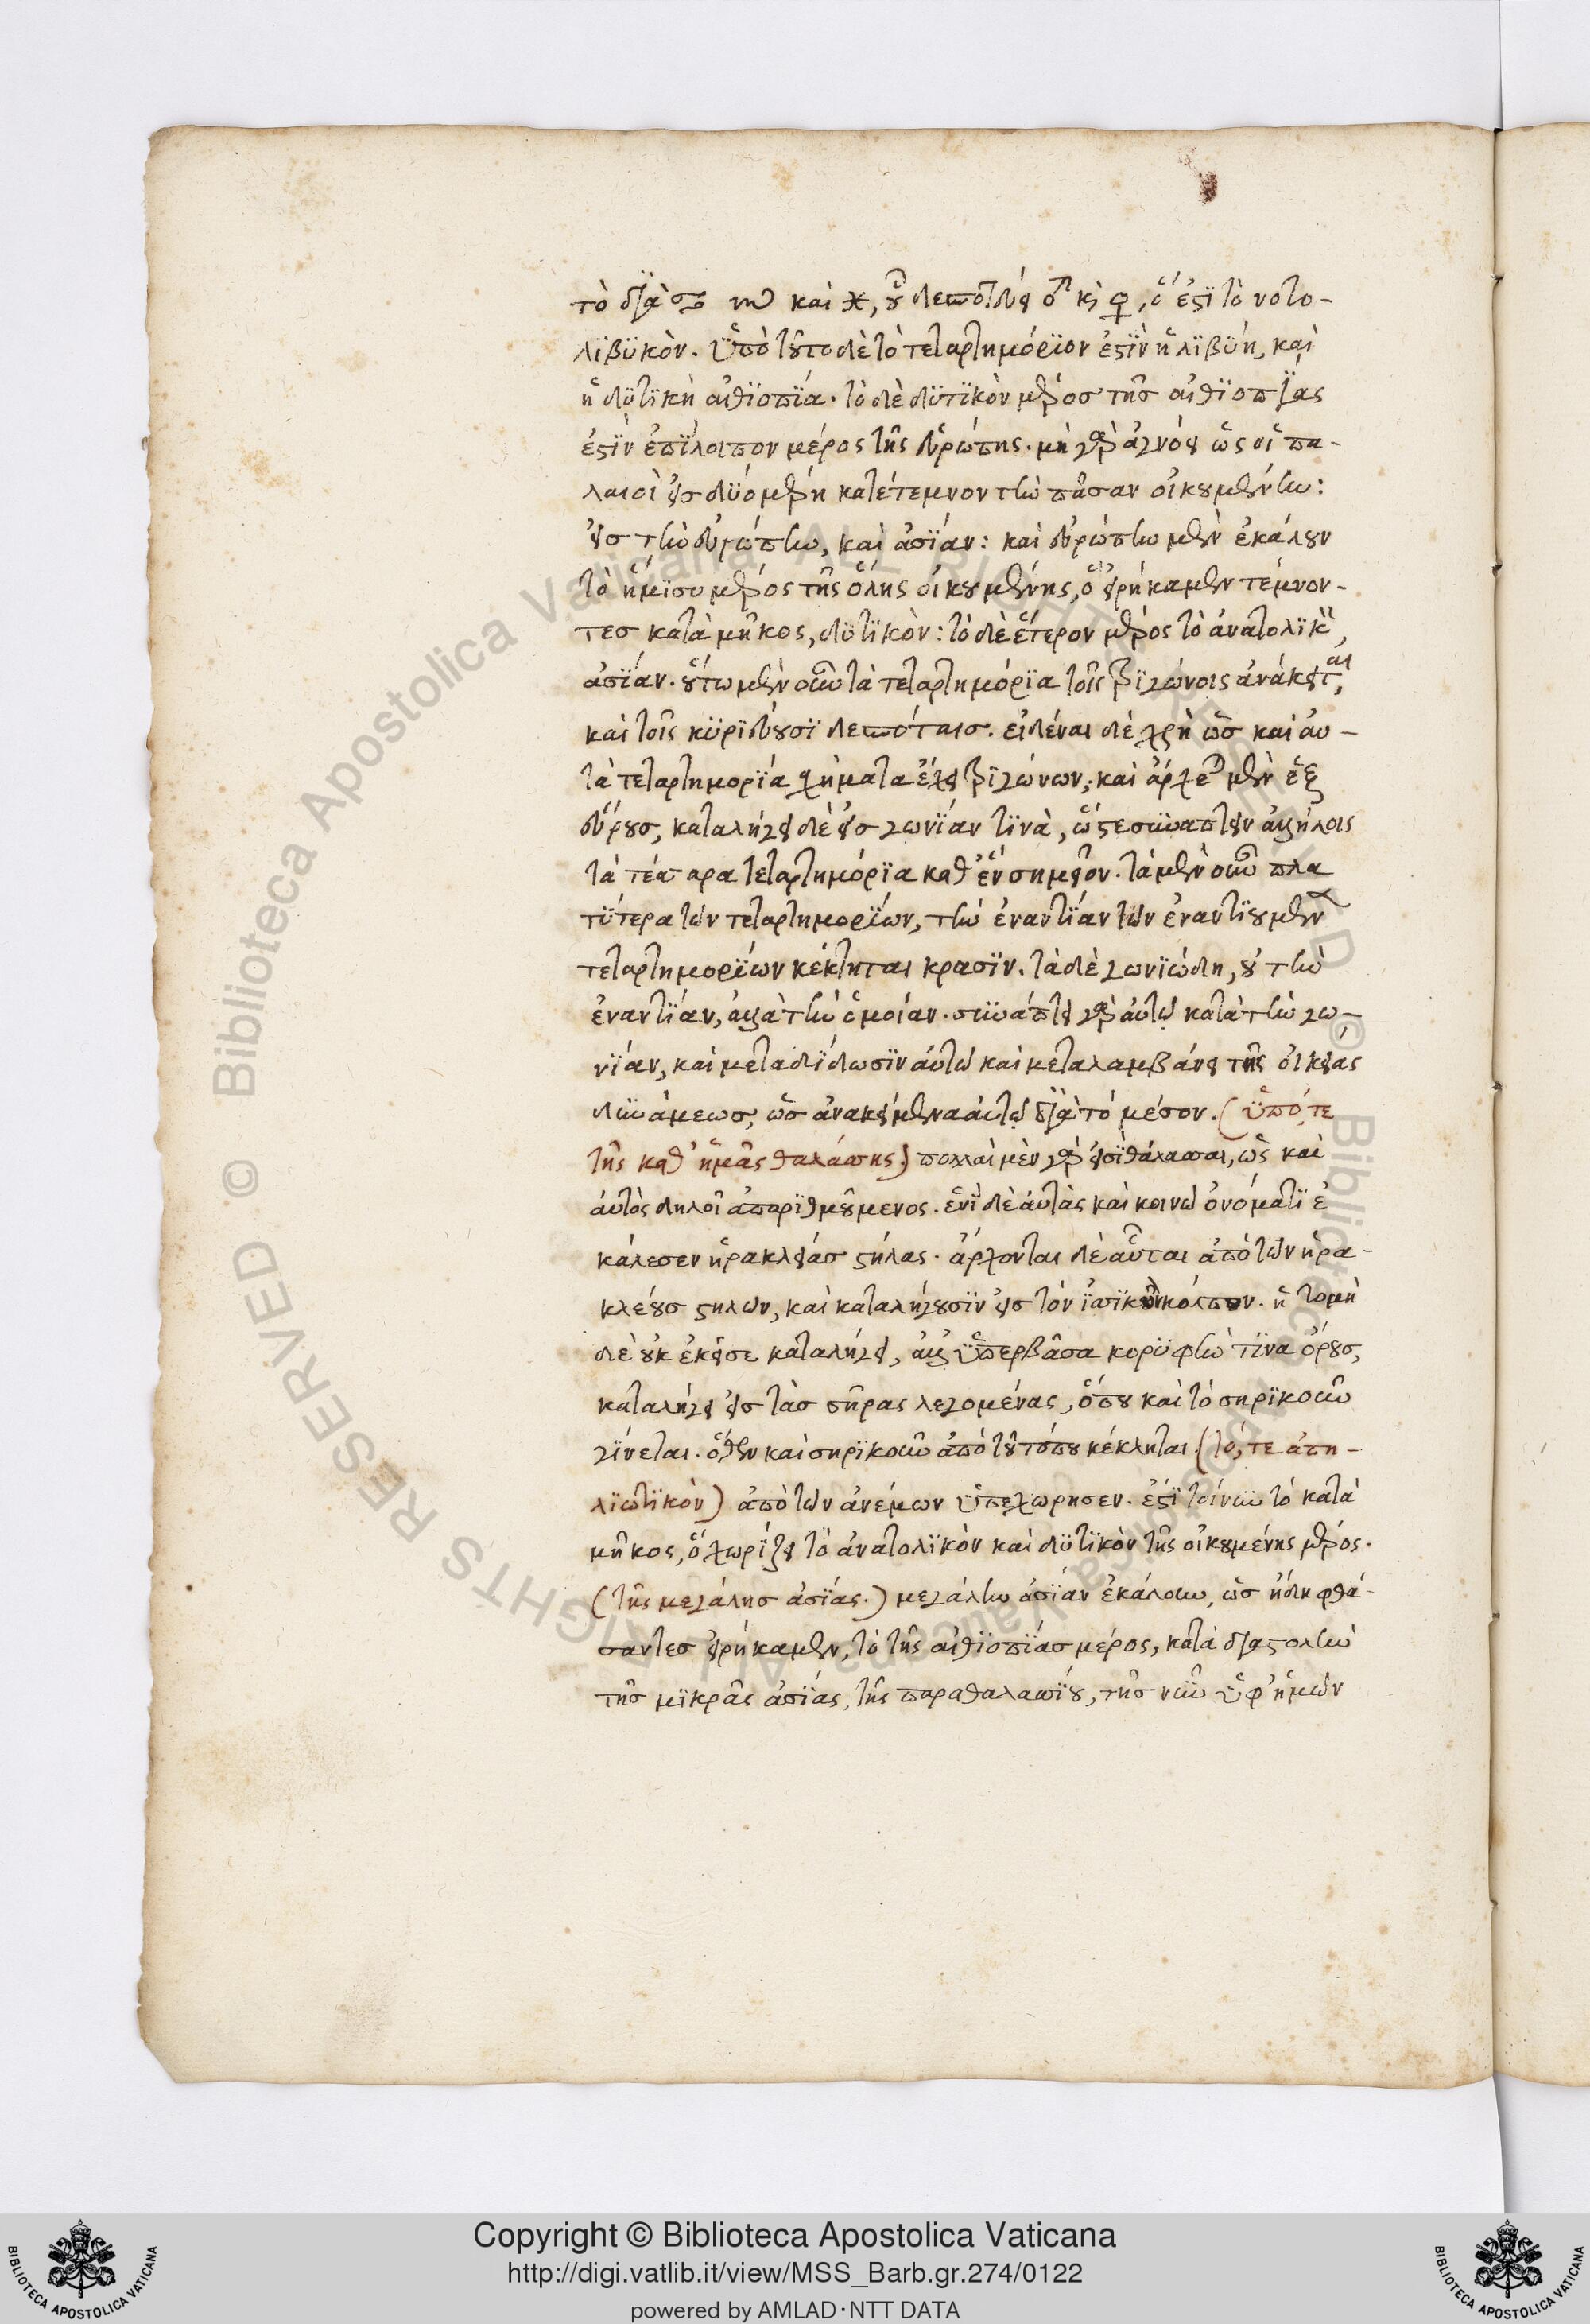 τὸ διὰ ♋ ♏ καὶ ♓, οὗ δεσποτεύει ♂ κὶ ♀, ὅ ἐστὶ τὸ νοτο-
λιβυκὸν. ὑπὸ τοῦτο δὲ τὸ τεταρτημόριον ἐστὶν ἡ λιβύη, καὶ
ἡ δυτικὴ αἰθιοπία. τὸ δὲ δυτικὸν μέρος τῆς αἰθιοπίας
ἐστὶν ἐπίλοιπον μέρος τῆς εὐρώπης. μὴ γὰρ ἀγνόει ὡς οἱ πα-
λαιοὶ εἰς δύο μέρη κατέτεμνον τὴν πᾶσαν οἰκουμένην:
εἰς τὴν εὐρώπην, καὶ ἀσίαν: καὶ εὐρώπην μὲν ἐκάλουν
τὸ ἥμισυ μέρος τῆς ὅλης οἰκουμένης, ὃ εἰρήκαμεν τέμνον-
τες κατὰ μῆκος, δυτικὸν: τὸ δὲ ἕτερον μέρος τὸ ἀνατολικὸν,
ἀσίαν. οὕτω μὲν οὖν τὰ τεταρτημόρια τοῖς τριγώνοις ἀνάκειται,
καὶ τοῖς κυριεύουσι δεσπόταις. εἰδέναι δὲ χρὴ ὡς καὶ αὐ-
τὰ τεταρτημορία σχήματα ἔχει τριγώνων, καὶ ἄρχεται μὲν ἐξ
εὔρους, καταλήγει δὲ εἰς γωνίαν τινὰ, ὥστε συνάπτειν ἀλλήλοις
τὰ τέσσαρα τεταρτημόρια καθ' ἓν σημεῖον. τὰ μὲν οὖν πλα
τύτερα τῶν τεταρτημορίων, τὴν ἐναντίαν τῶν ἐναντιουμένων
τεταρτημορίων κέκτηται κρασιν. τὰ δὲ γωνιώδη, οὐ τὴν
ἐναντίαν, ἀλλὰ τὴν ὁμοίαν. συνάπτει γὰρ αὐτῷ κατὰ τὴν γω-
νίαν, καὶ μεταδίδωσιν αὐτῷ καὶ μεταλαμβάνει τῆς οἰκείας
δυνάμεως, ὡς ἀνακείμενα αὐτῷ διὰ τὸ μέσον. (ὑπό, τε
τῆς καθ' ἡμᾶς θαλάσσης) πολλαὶ μὲν γὰρ εἰσὶ θάλασσαι, ὡς καὶ
αὐτὸς δηλοῖ ἀπαριθμούμενος. ἑνὶ δὲ αὐτὰς καὶ κοινῷ ὀνόματι ἐ
κάλεσεν ἡρακλείας στήλας. ἄρχονται δὲ αὗται ἀπὸ τῶν ἡρα-
κλέους στηλων, καὶ καταλήγουσιν εἰς τὸν ἰσσικὸν κόλπον. ἡ τομὴ
δὲ οὐκ ἐκεῖσε καταλήγει, ἀλλ' ὑπερβᾶσα κορυφὴν τίνα ὄρους,
καταλήγει εἰς τὰς σῆρας λεγομένας, ὅπου καὶ τὸ σηρικοὺν
γίνεται. ὅθεν καὶ σηρικοὺν ἀπὸ τοῦ τόπου κέκληται. (τό, τε ἀπη-
λιωτικὸν) ἀπὸ τῶν ἀνέμων ὑπεχωρησεν. ἐστὶ τοίνυν τὸ κατὰ
μῆκος, ὃ χωρίζει τὸ ἀνατολικὸν καὶ δυτικὸν τῆς οἰκουμένης μέρος.
(τῆς μεγάλης ἀσίας.) μεγάλην ἀσίαν ἐκάλουν, ὡς ἤδη φθά-
σαντες εἰρήκαμεν, τὸ τῆς αἰθιοπίας μέρος, κατὰ διαστολὴν
τῆς μικρᾶς ἀσίας, τῆς παραθαλασσίου, τῆς νῦν ὑφ' ἡμῶν
Copyright © Biblioteca Apostolica Vaticana
http://digi.vatlib.it/view/MSS_Barb.gr.274/0122
powered by AMLAD·NTT DATA